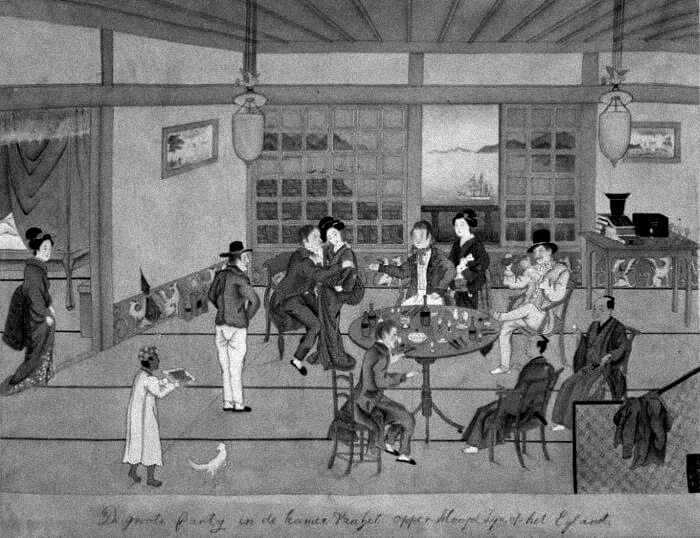 De groote Party in de kamer van het opper Hoofd op het Eyland.